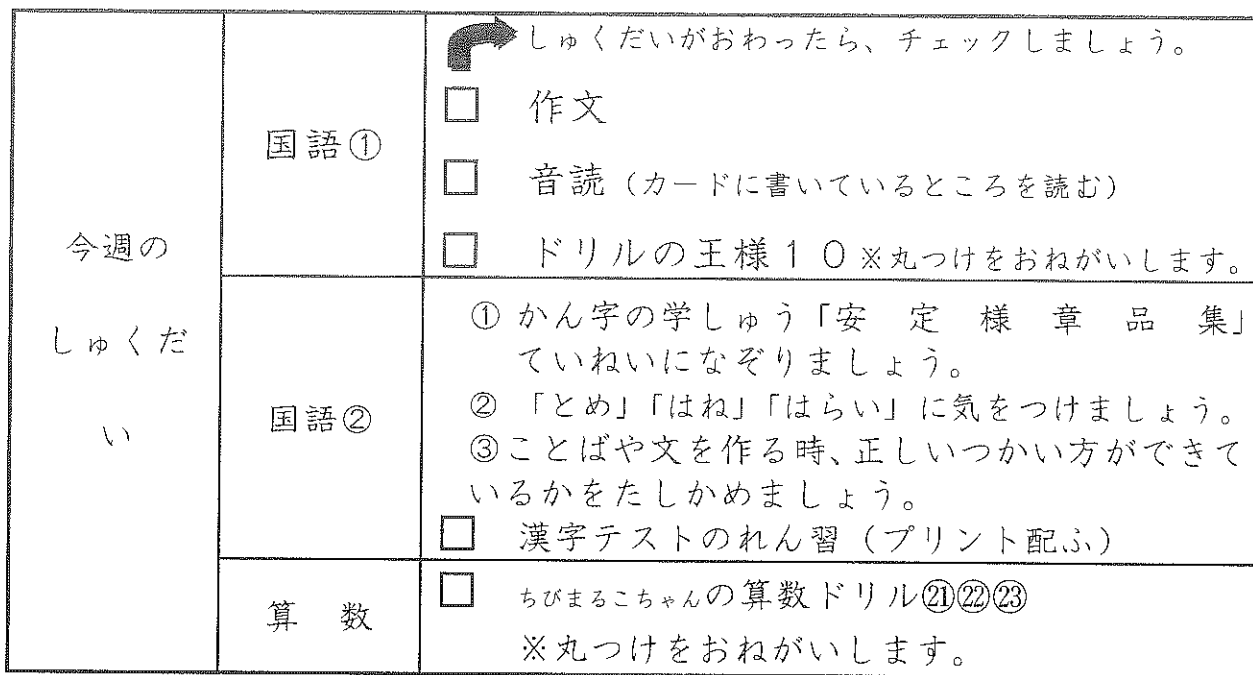 今週の
しゅくだ
い
国語①
しゅくだいがおわったら、チェックしましょう。
□ 作文
□ 音読（カードに書いているところを読む）
□ ドリルの王様１０※丸つけをおねがいします。
国語②
① かん字の学しゅう「安　定　様　章　品　集」
ていねいになぞりましょう。
② 「とめ」「はね」「はらい」に気をつけましょう。
③ことばや文を作る時、正しいつかい方ができて
いるかをたしかめましょう。
□ 漢字テストのれん習（プリント配ふ）
算　数
□ ちびまるこちゃんの算数ドリル㉑㉒㉓
※丸つけをおねがいします。